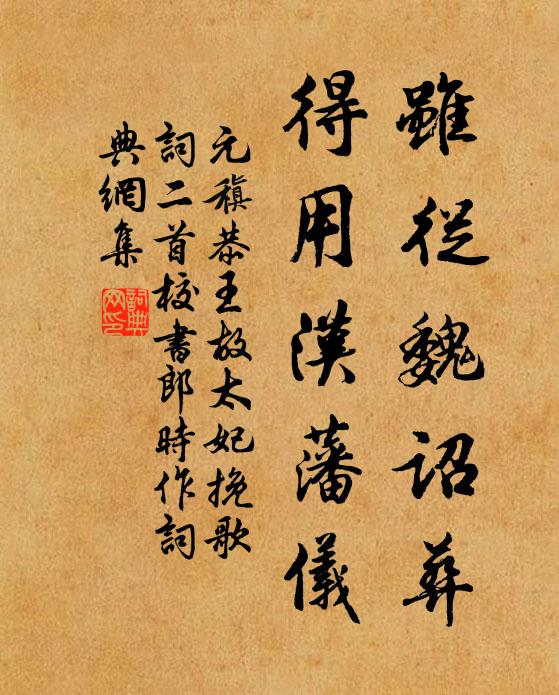 雖從魏詔葬
得用漢藩儀
元稹恭王故太妃挽歌
詞二首校書郎時作詞
典網集
詞典網印